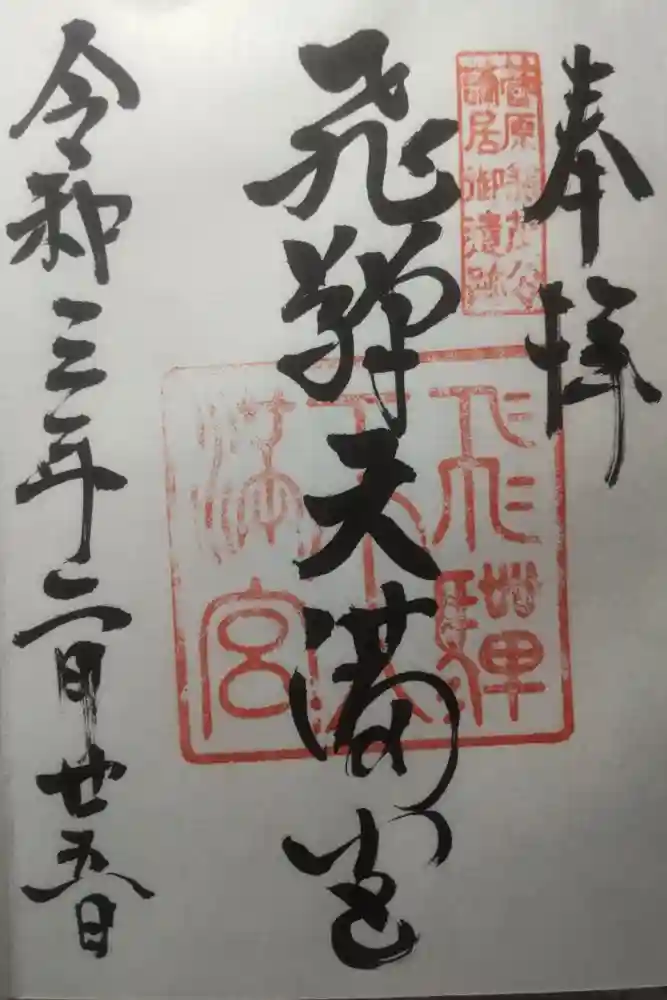 奉拝
菅原兼茂公
謫居御遺跡
飛騨天満宮
飛驒
天
満宮
令和三年二月廿五日